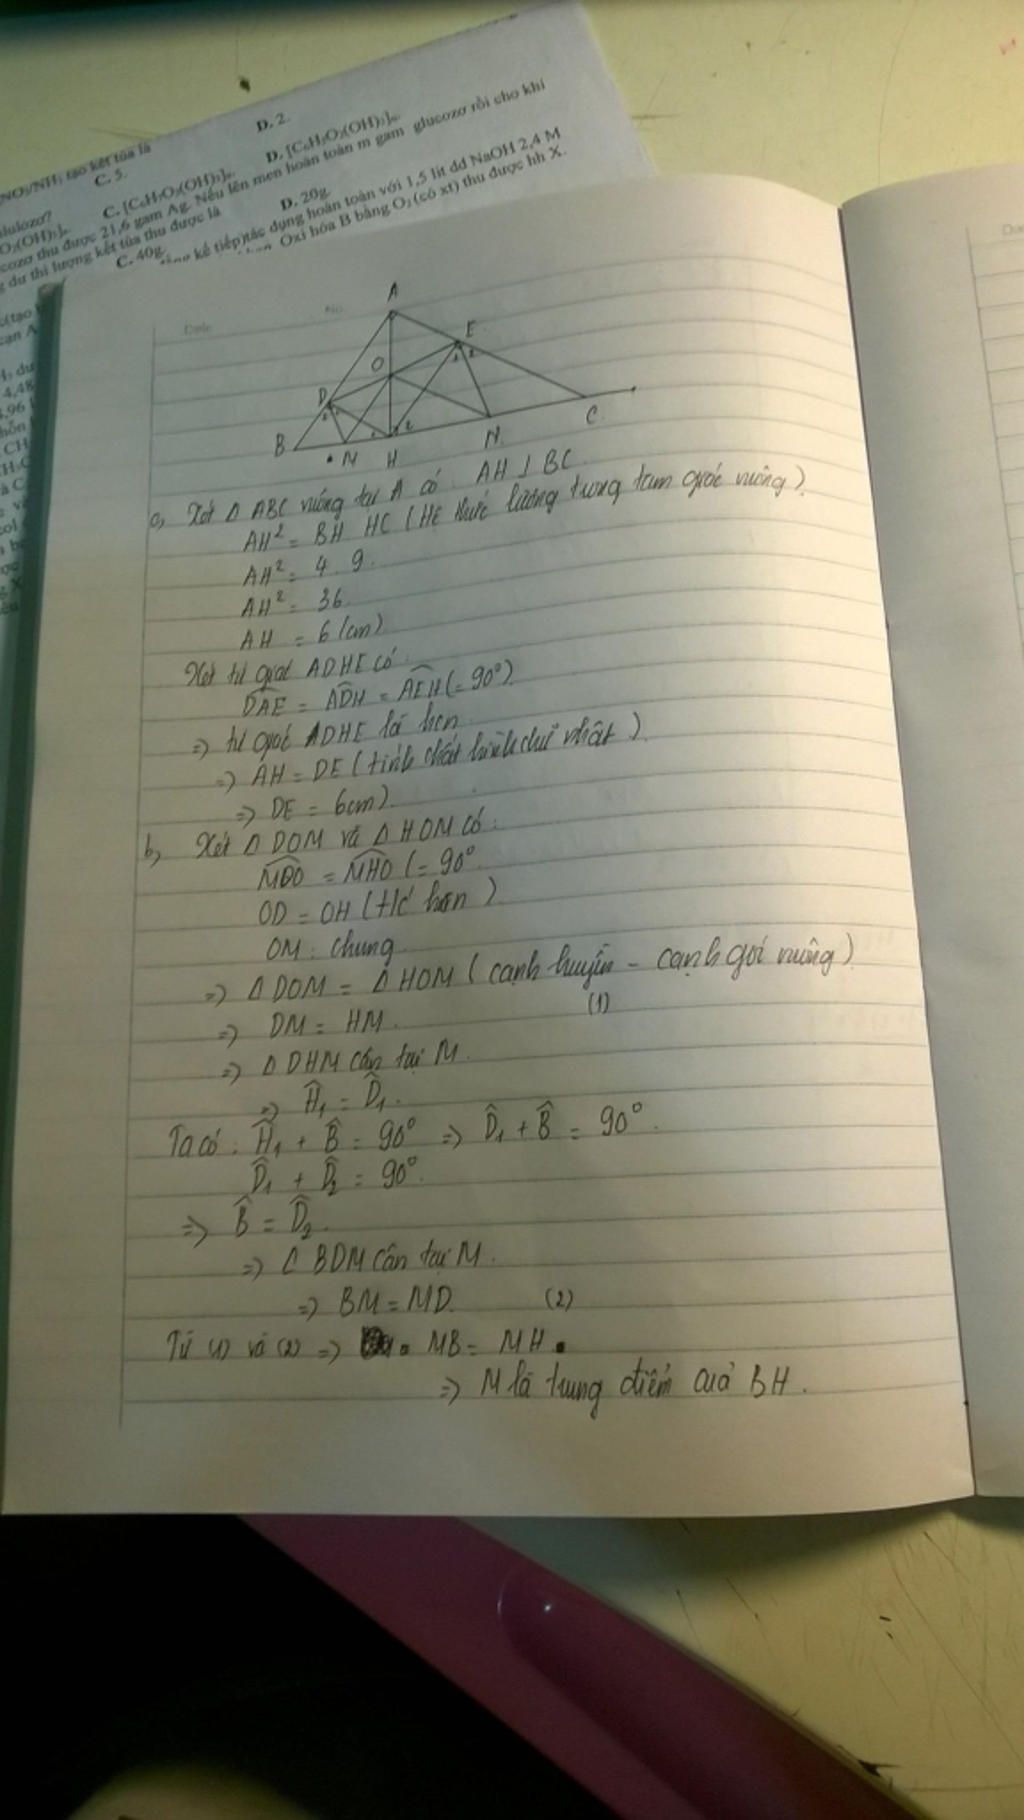 D. 2.
NO₃/NH₃ tạo kết tủa là
C. 5.
D. [C₆H₅O₂(OH)₃]ₙ.
C. [C₆H₇O₃(OH)₃]ₙ.
glucozơ rồi cho khí
cozơ thu được 21,6 gam Ag. Nếu lên men hoàn toàn m gam
dư thì lượng kết tủa thu được là
D. 20g.
C. 40g.
kế tiếp)tác dụng hoàn toàn với 1,5 lít dd NaOH 2,4 M
Oxi hóa B bằng O₂ (có xt) thu được hh X.
Date No
A
E
O
D
B
M H N C
a, Xét Δ ABC vuông tại A có AH ⊥ BC
AH² = BH HC (Hệ thức lượng trong tam giác vuông).
AH² = 4 . 9.
AH² = 36
AH = 6 (cm)
Xét tứ giác ADHE có:
DAE = ADH = AEH (= 90°)
=> tứ giác ADHE là hcn.
=> AH = DE (tính chất hình chữ nhật).
=> DE = 6cm).
b, Xét Δ DOM và Δ HOM có:
MDO = MHO (= 90°.
OD = OH (t/c hcn)
OM: chung.
=> Δ DOM = Δ HOM (cạnh huyền - cạnh góc vuông)
=> DM = HM. (1)
=> Δ DHM cân tại M.
=> H₁ = D₁.
Ta có: H₁ + B = 90° => D₁ + B = 90°.
D₁ + D₂ = 90°.
=> B = D₂.
=> Δ BDM cân tại M.
=> BM = MD. (2)
Từ (1) và (2) => MB = MH.
=> M là trung điểm của BH.